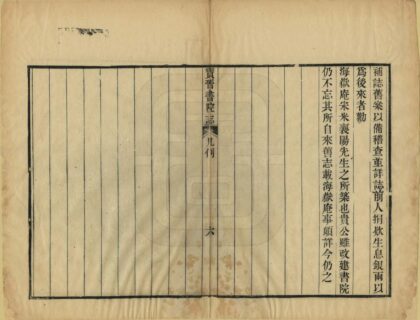 補誌舊案以備稽查並詳誌前人捐款生息銀兩以
為後來者勸
海嶽庵宋米襄陽先生之所築也貴公雖改建書院
仍不忘其所自來舊志載海嶽庵事頗詳今仍之
寶晉書院志
凡例
六